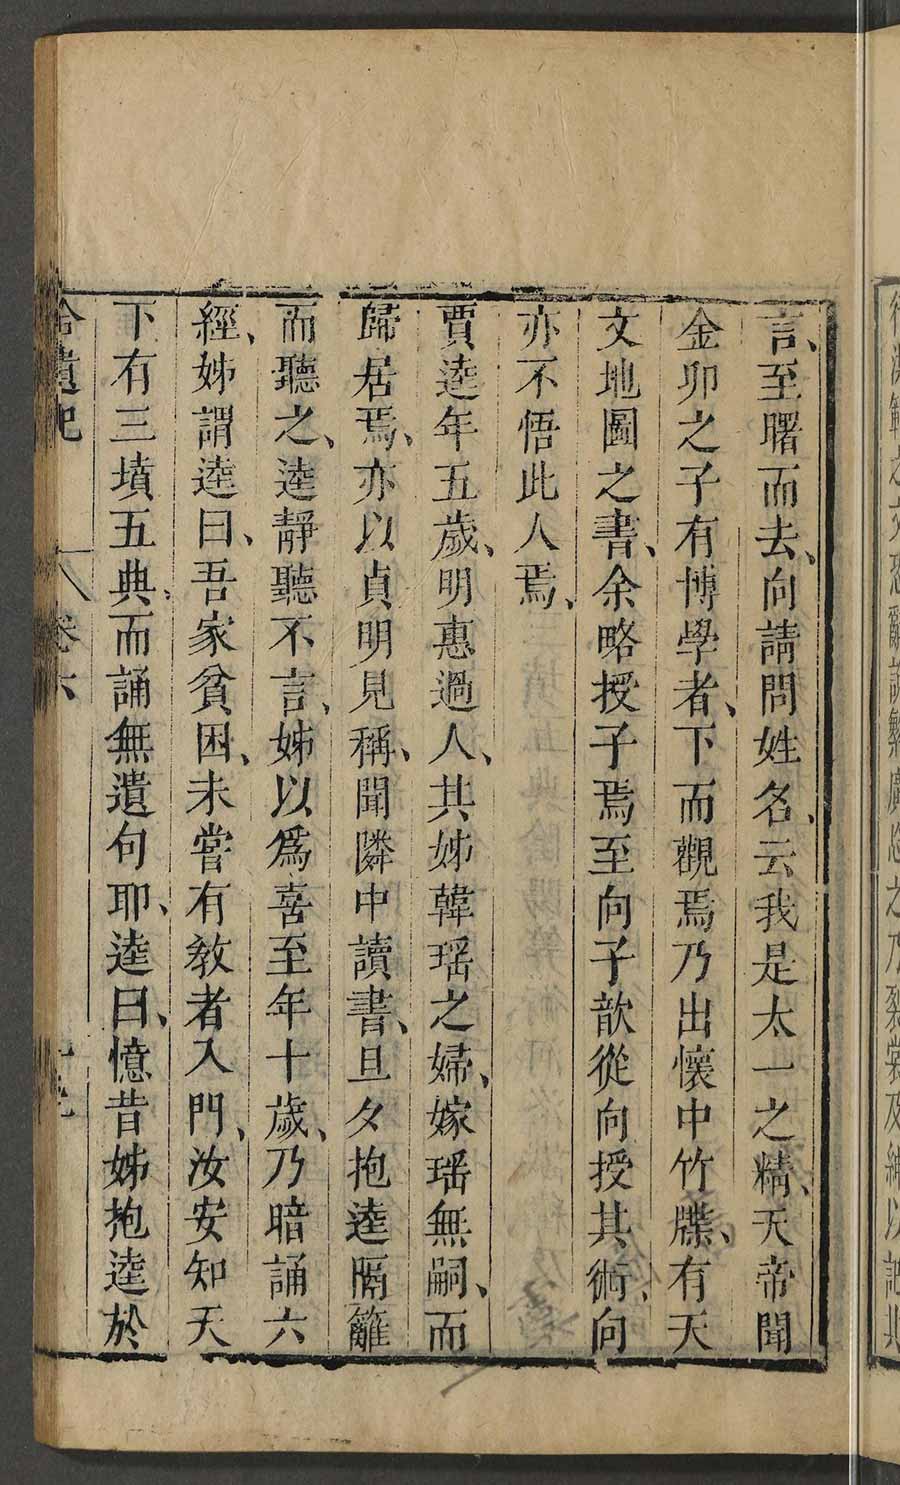 言、至曙而去、向請問姓名、云我是太一之精、天帝聞
金卯之子有博學者、下而觀焉乃出懷中竹牒、有天
文地圖之書、余略授子焉至向子歆從向授其術、向
亦不悟此人焉、
賈逵年五歲、明惠過人、其姊韓瑶之婦、嫁瑶無嗣、而
歸居焉、亦以貞明見稱、聞隣中讀書、旦夕抱逵隔籬
而聽之、逵靜聽不言、姊以爲喜至年十歲、乃暗誦六
經、姊謂逵曰、吾家貧困、未嘗有敎者入門、汝安知天
下有三墳五典、而誦無遺句耶、逵曰、憶昔姊抱逵於
拾遺記 卷六